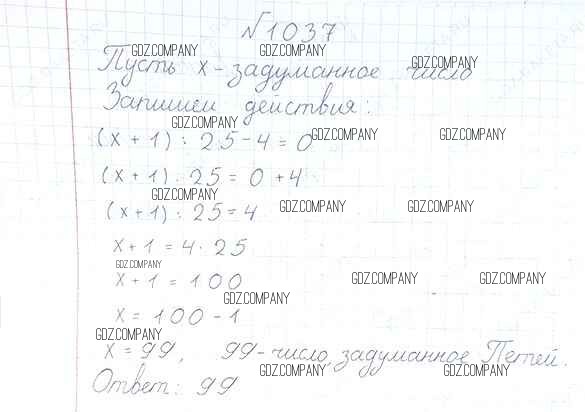 №1037
GDZ.COMPANY GDZ.COMPANY
Пусть x - задуманное число
GDZ.COMPANY
Запишем действия:
GDZ.COMPANY
(x + 1) : 25 - 4 = 0
GDZ.COMPANY GDZ.COMPANY
(x + 1) : 25 = 0 + 4
GDZ.COMPANY
(x + 1) : 25 = 4
GDZ.COMPANY GDZ.COMPANY
x + 1 = 4 · 25
GDZ.COMPANY
x + 1 = 100
GDZ.COMPANY GDZ.COMPANY
GDZ.COMPANY
x = 100 - 1
GDZ.COMPANY
x = 99, 99 - число, задуманное Петей.
GDZ.COMPANY GDZ.COMPANY
Ответ: 99